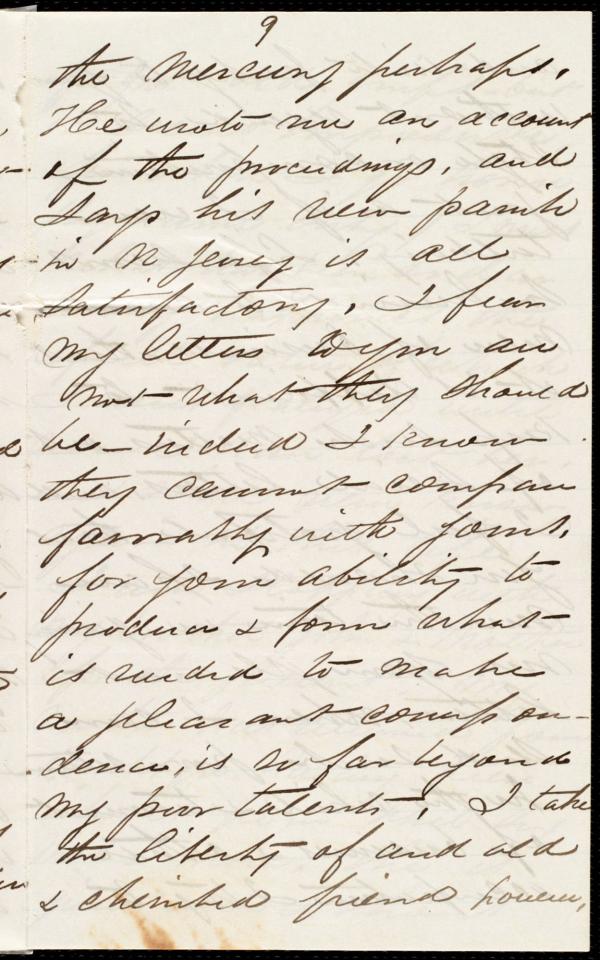 9
the Mercury perhaps.
He wrote me an account
of the proceedings, and
says his new parish
in N Jersey is all
satisfactory. I fear
my letters to you are
not what they should
be - indeed I know
they cannot compare
favorably with yours.
for your ability to
produce & form what
is needed to make
a pleasant correspon-
dence, is so far beyond
my poor talents. I take
the liberty of and old
& cherished friend however,